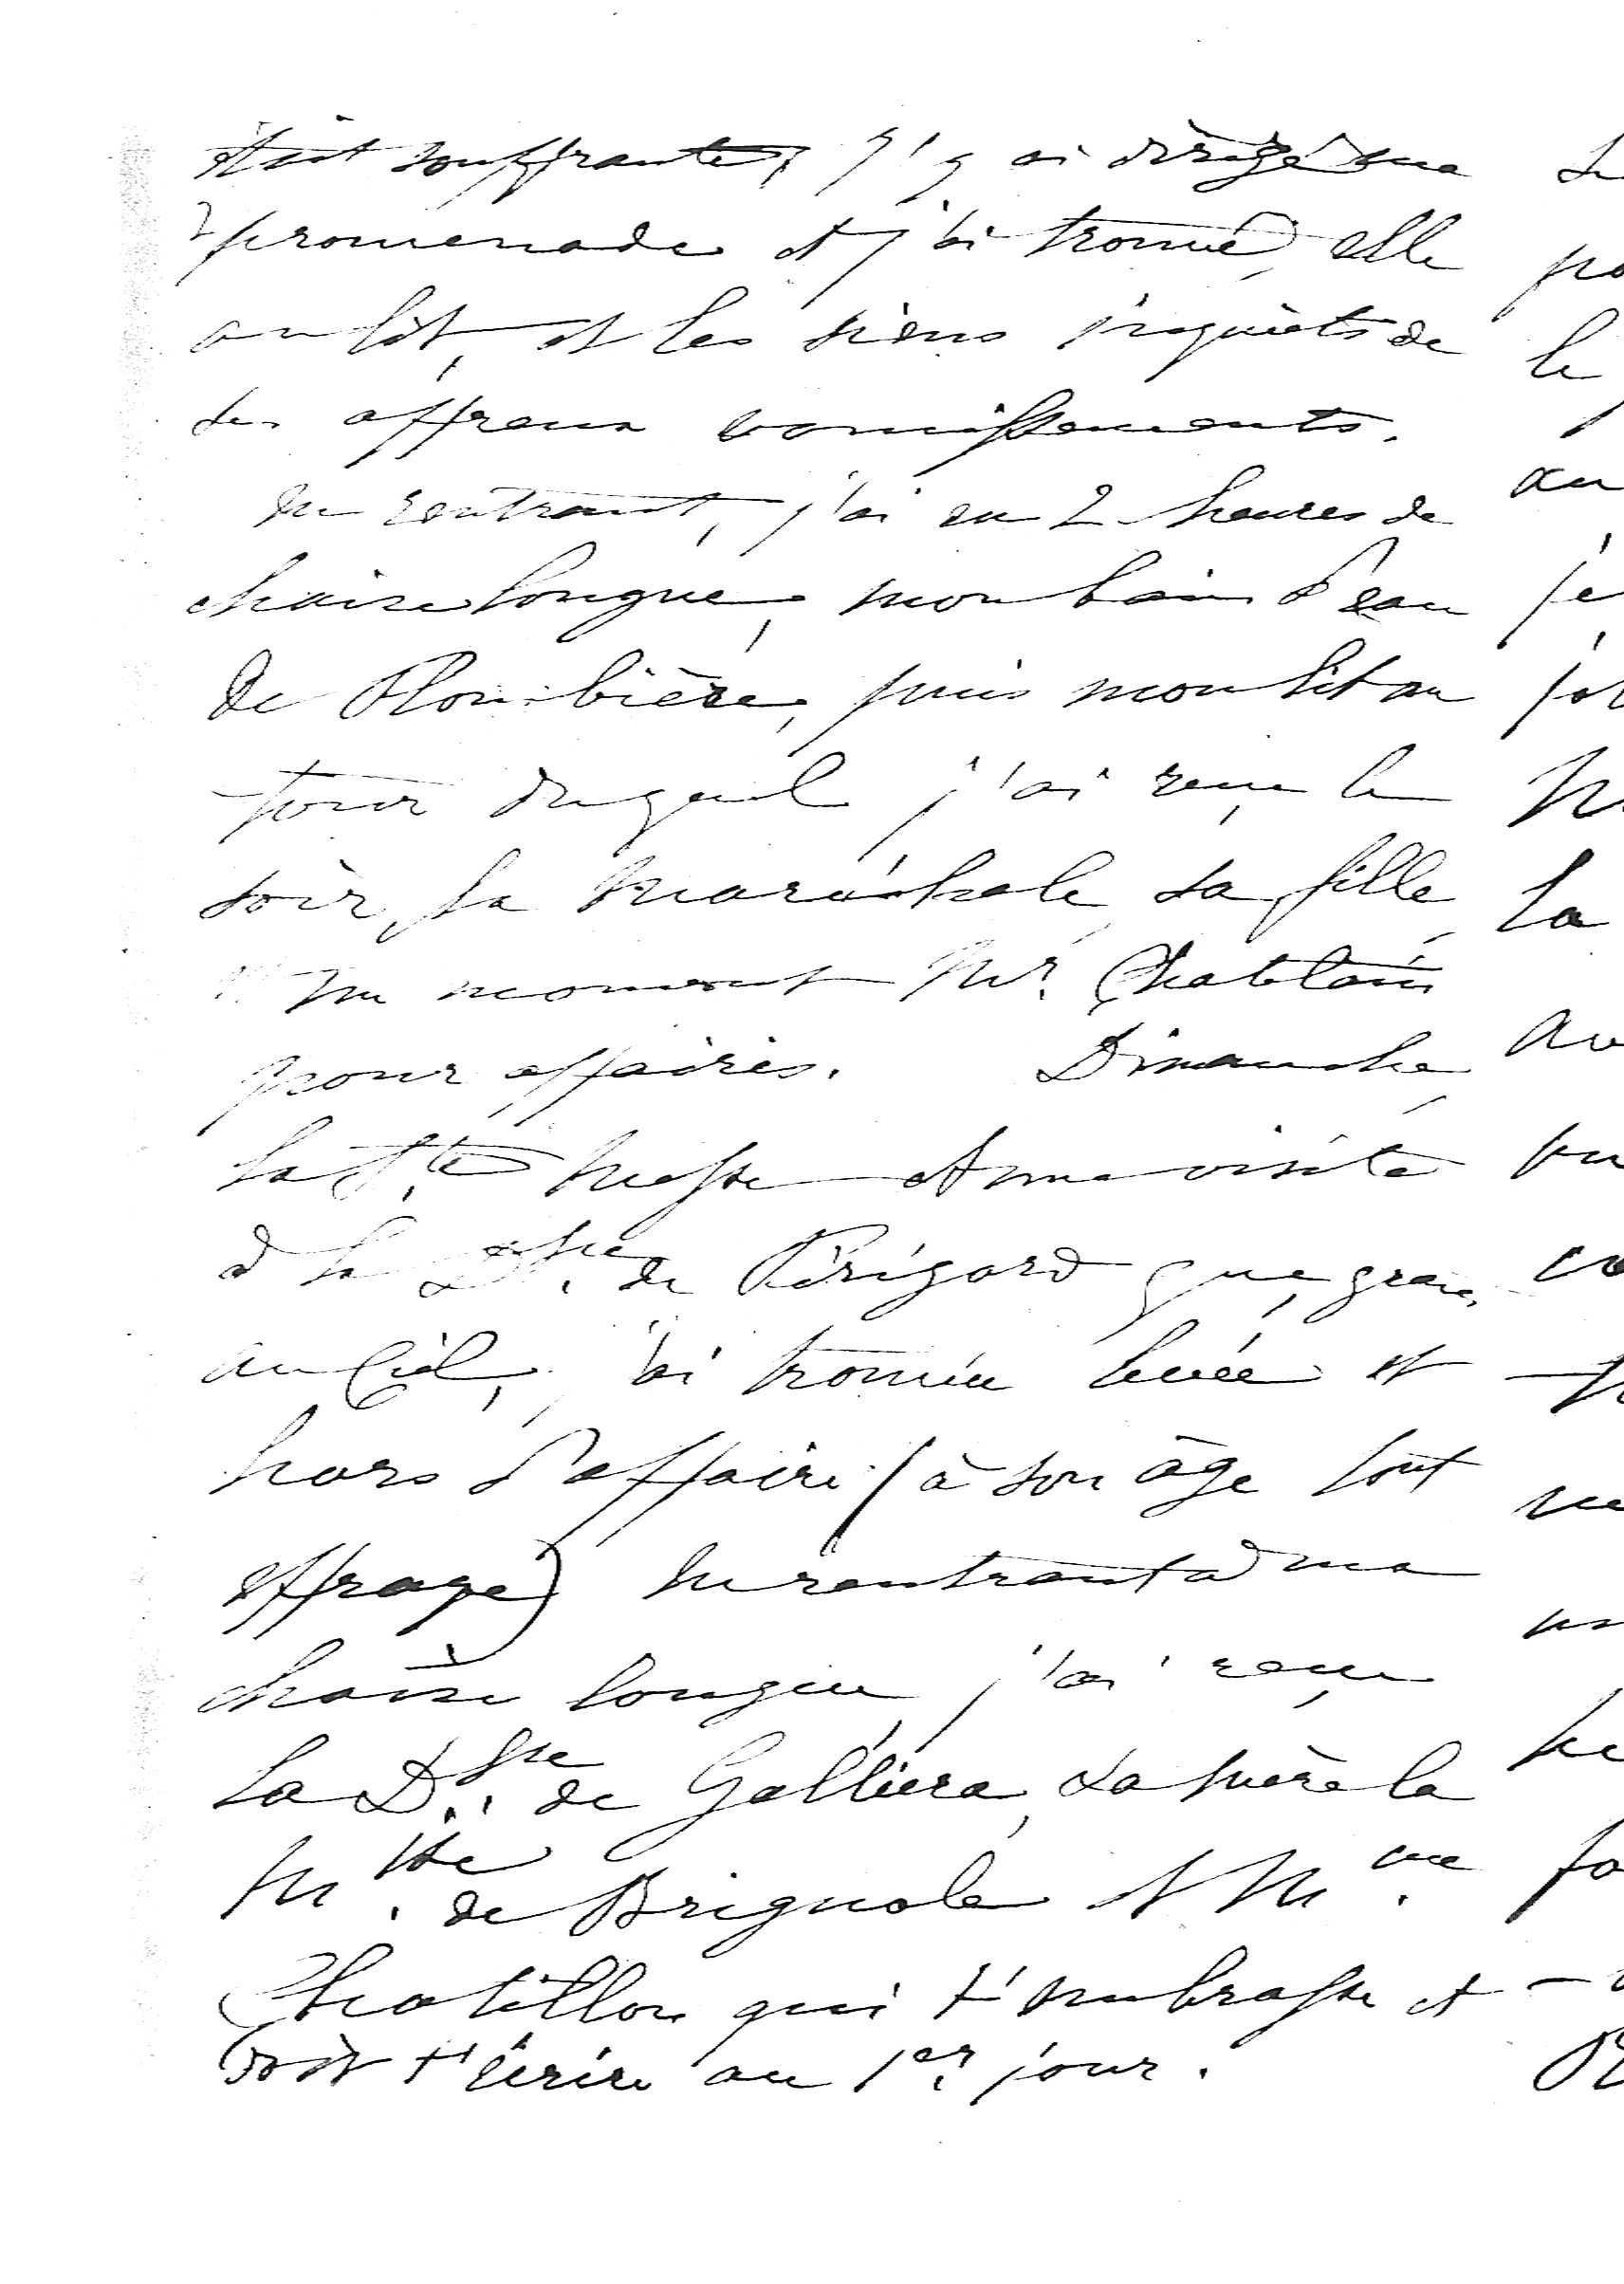 était souffrante, j'y ai dirigé ma
promenade et j'ai trouvé, elle
au lit, et les siens inquiets de
ses affreux vomissements.
En rentrant, j'ai eu 2 heures de
chaise longue, mon bain d'eau
de Plombière, puis mon lit au
tour duquel j'ai reçu le
soir, la maréchale, sa fille,
un moment Mr. Chatelain
pour affaires. Dimanche,
la Ste Messe et ma visite
à la Dsse. de Périgord que, grâces
au Ciel, j'ai trouvée levée et
hors d'affaire (à son âge tout
effraye) En rentrant à ma
chaise longue, j'ai reçu
la Dsse. de Galliera, sa mère la
Mise. de Brignole et Mme.
Chatillon qui t'embrasse et
doit t'écrire au 1er. jour.